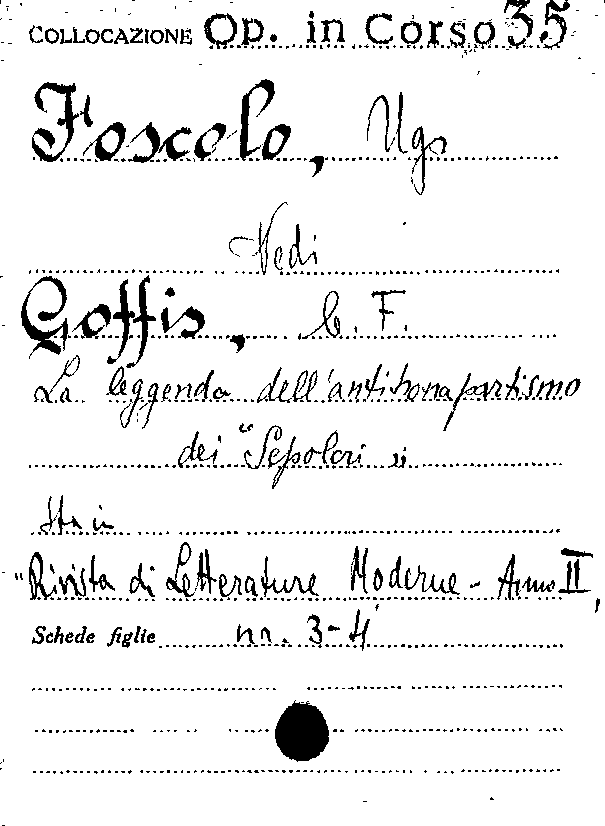 COLLOCAZIONE Op. in Corso 35
Foscolo, Ugo
Vedi
Goffis, C. F.
La leggenda dell'antibonapartismo
dei "Sepolcri"
Sta in
"Rivista di Letterature Moderne - Anno II,
Schede figlie nr. 3-4